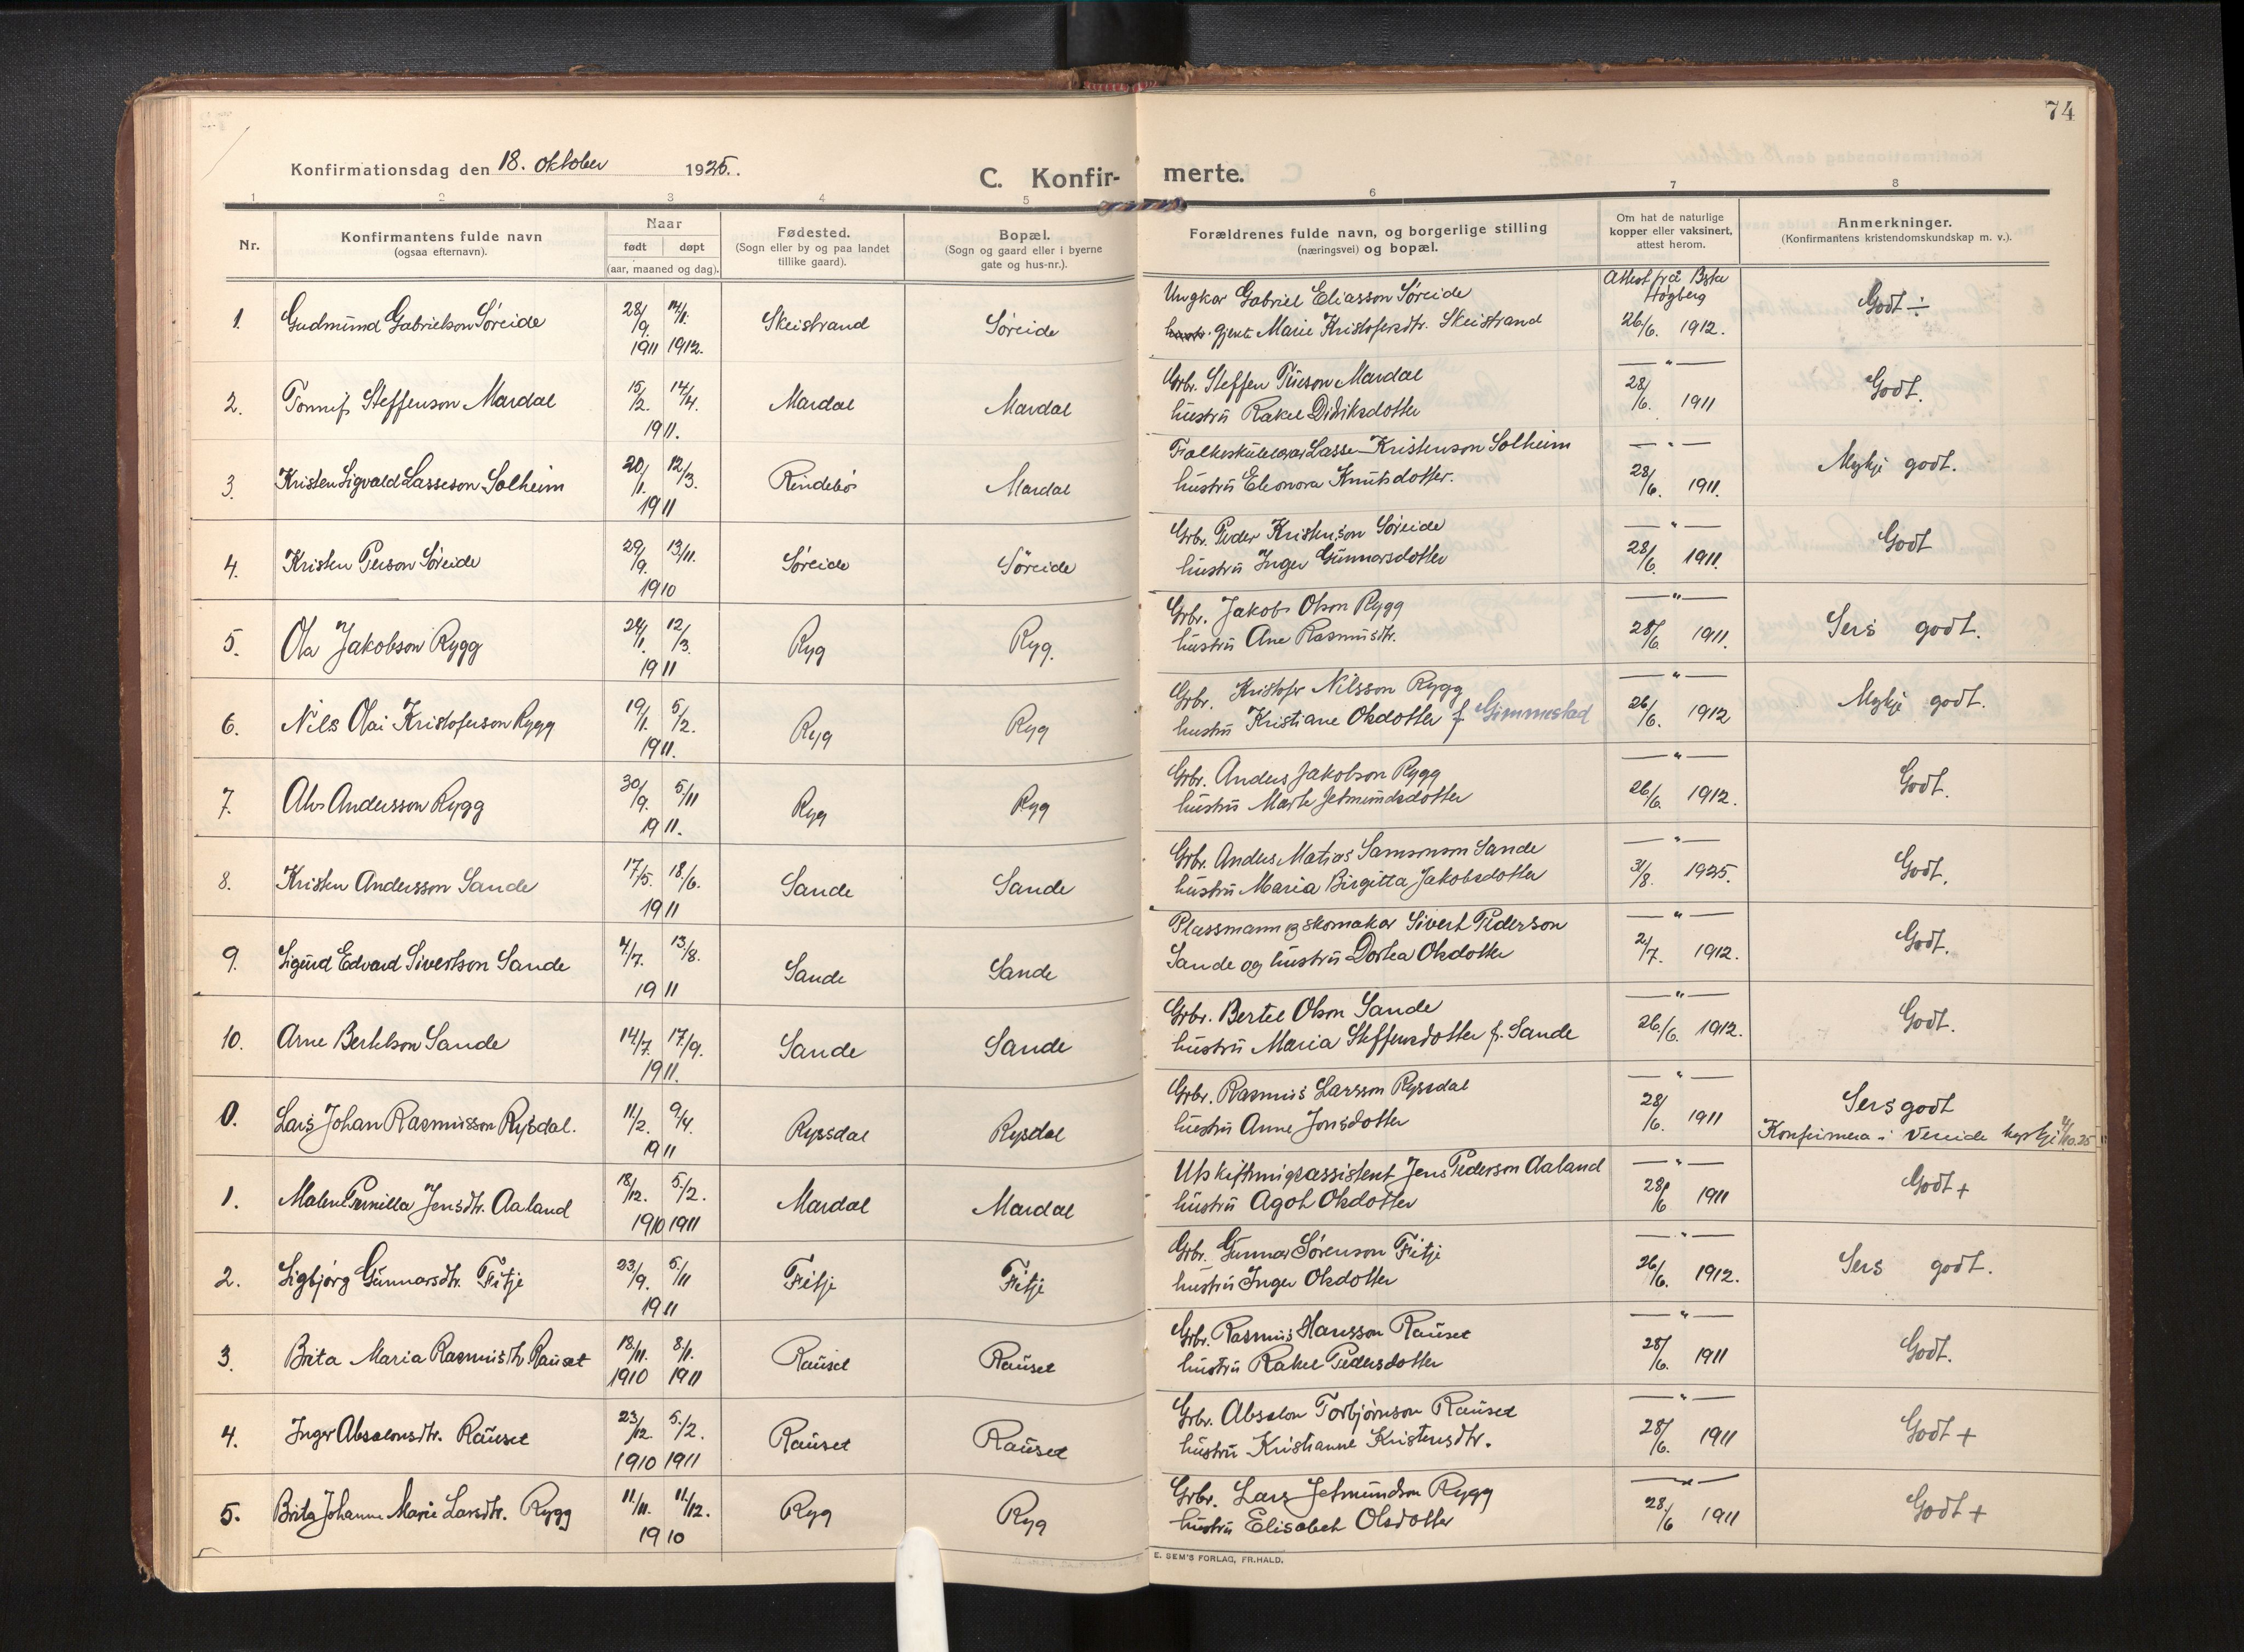 74
Konfirmationsdag den 18. oktober 1925.
C. Konfir- merte.
1 2 3 4 5 6 7 8
Nr.
Konfirmantens fulde navn
(ogsaa efternavn).
Naar
født døpt
(aar, maaned og dag).
Fødested.
(Sogn eller by og paa landet
tillike gaard).
Bopæl.
(Sogn og gaard eller i byerne
gate og hus-nr.).
Forældrenes fulde navn, og borgerlige stilling
(næringsvei) og bopæl.
Om hat de naturlige
kopper eller vaksinert,
attest herom.
Anmerkninger.
(Konfirmantens kristendomskundskap m. v.).
1. Gudmund Gabrielson Søreide 28/9. 1911 14/1. 1912. Skeistrand Søreide
Ungkar Gabriel Eliasson Søreide
gjente Marie Kristofersdtr. Skeistrand
Attest frå Bsta Høgberg
26/6. 1912. Godt ÷
2. Steffenson Mardal 15/2. 14/4. 1911. Mardal Mardal
Grb. Steffen Mardal
hustrü Rakel Didriksdotter
— " — 28/6. 1911 Godt.
3. Kristen Sigvald Lasseson Solheim 20/1. 12/3. 1911 Rindebø Mardal
Lasse Kristenson Solheim
hustrü Eleonora Knutsdotter.
— " — 28/6. 1911. Mykje godt.
4. Kristen Person Søreide 29/9. 13/11. 1910 Søreide Søreide
Grb. Peder Kristenson Søreide
hustrü Inger Gunnarsdotter
— " — 28/6. 1911. Godt
5. Ola Jakobson Rygg 24/1. 12/3. 1911 Ryg Ryg.
Grb. Jakob Olson Rygg
hustrü Ane Rasmusdtr.
— " — 28/6. 1911. Sers godt.
6. Nils Olai Kristoferson Rygg 19/1. 5/2. 1911. Ryg Ryg
Grbr. Kristofer Nilsson Rygg
hustrü Kristiane Olsdotter f Gimmestad
— " — 26/6. 1912 Mykje godt.
7. Andersson Rygg 30/9. 5/11 1911. Ryg Ryg
Grbr. Anders Jakobson Rygg
hustrü Marte Jetmundsdotter
— " — 26/6. 1912. Godt.
8. Kristen Andersson Sande 17/5. 18/6. 1911 Sande Sande
Grbr. Anders Matias Samsonson Sande
hustrü Maria Birgitta Jakobsdotter
— " — 31/8. 1925. Godt.
9. Sigurd Edvard Sivertson Sande 4/7. 13/8. 1911 Sande Sande
Plassmann og skomakar Sivert Pederson
Sande og hustrü Dortea Olsdotter
— " — 2/7. 1912. Godt.
10. Arne Bertelson Sande 14/7. 17/9. 1911. Sande Sande
Grbr. Bertel Olson Sande
hustrü Maria Steffensdotter f. Sande
— " — 26/6. 1912. Godt.
0. Lars Johan Rasmusson Rysdal. 11/2. 9/4. 1911 Ryssdal Rysdal
Grbr. Rasmus Larsson Ryssdal
hustrü Anne Jonsdotter
— " — 28/6. 1911 Sers godt
Konfirmera i Vereide kyrkje
1. Malene Pernilla Jensdtr. Aaland 18/12. 5/2. 1910 1911 Mardal Mardal
Utskiftningsassistent Jens Pederson Aaland
hustrü Agot Olsdotter
— " — 28/6 1911 Godt +
2. Sigbjørg Gunnarsdtr. Fitje 23/9. 5/11 1911 Fitje Fitje
Grbr. Gunnar Sørenson Fitje
hustrü Inger Olsdotter
— " — 26/6. 1912. Sers godt.
3. Brita Maria Rasmusdtr Rauset 18/11. 8/1. 1910 1911 Rauset Rauset
Grbr. Rasmus Hansson Rauset
hustrü Rakel Pedersdotter
— " — 28/6. 1911 Godt.
4. Inger Absalonsdtr. Rauset 23/12. 5/2. 1910 1911 Rauset Rauset
Grbr. Absalon Torbjørnson Rauset
hustrü Kristianne Kristensdtr.
— " — 28/6. 1911 Godt +
5. Brita Johanne Marie Larsdtr. Rygg 11/11. 11/12. 1910 Ryg Ryg
Grbr. Lars Jetmundson Rygg
hustrü Elisabet Olsdotter
— " — 28/6 1911 Godt +
E. SEM'S FORLAG, FR.HALD.